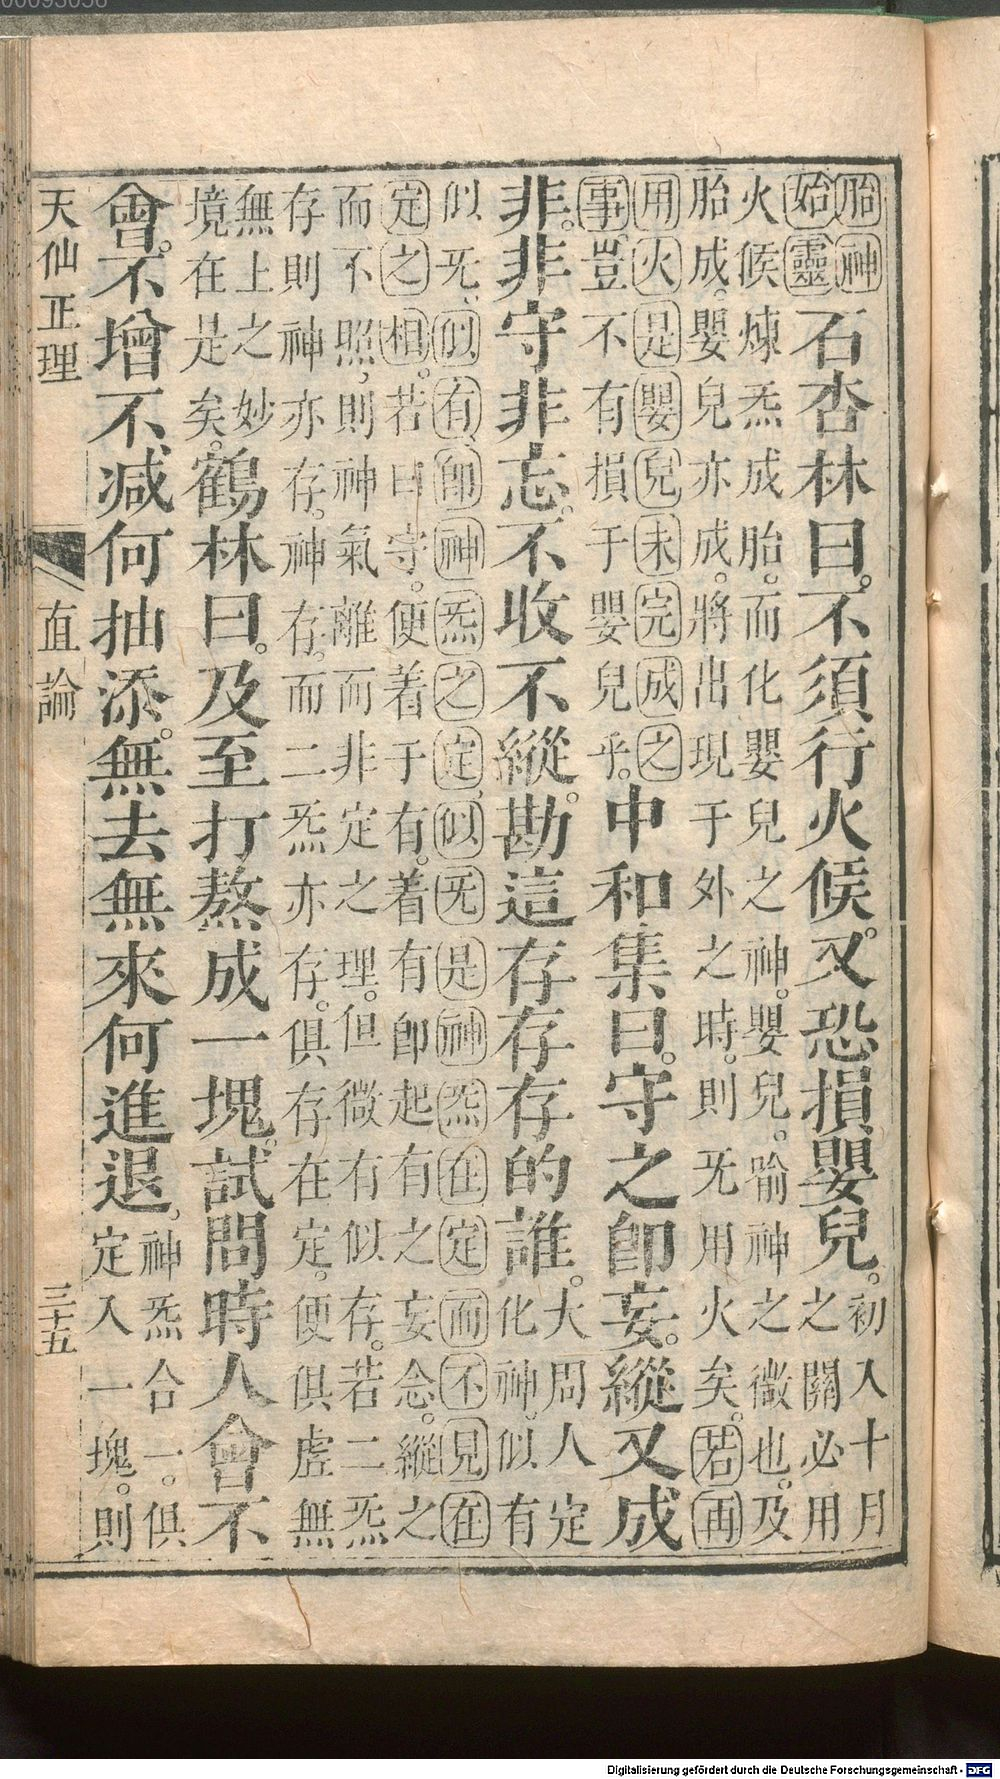 胎神
始靈石杏林曰。不須行火候。又恐損嬰兒。初入十月
之關必用
火候煉炁成胎。而化嬰兒之神。嬰兒。喻神之微也。及
胎成。嬰兒亦成。將出現于外之時。則旡用火矣。若再
用火是嬰兒未完成之
事豈不有損于嬰兒乎。中和集曰。守之卽妄。縱又成
非。非守非忘。不收不縱。勘這存存存的誰。大周人定
化神。似有
似旡、似有、卽神炁之定、似旡是神炁在定而不見在
定之相。若曰守。便着于有。着有卽起有之妄念。縱之
而不照、則神氣離而非定之理。但微有似存。若二炁
存則神亦存。神存。而二炁亦存。俱存在定。便俱虛無
無上之妙
境在是矣。鶴林曰。及至打熬成一塊。試問時人會不
會。不增不减何抽添。無去無來何進退。神炁合一。俱
定入一塊。則
天仙正理
直論
三十五
00093058
Digitalisierung gefördert durch die Deutsche Forschungsgemeinschaft - DFG